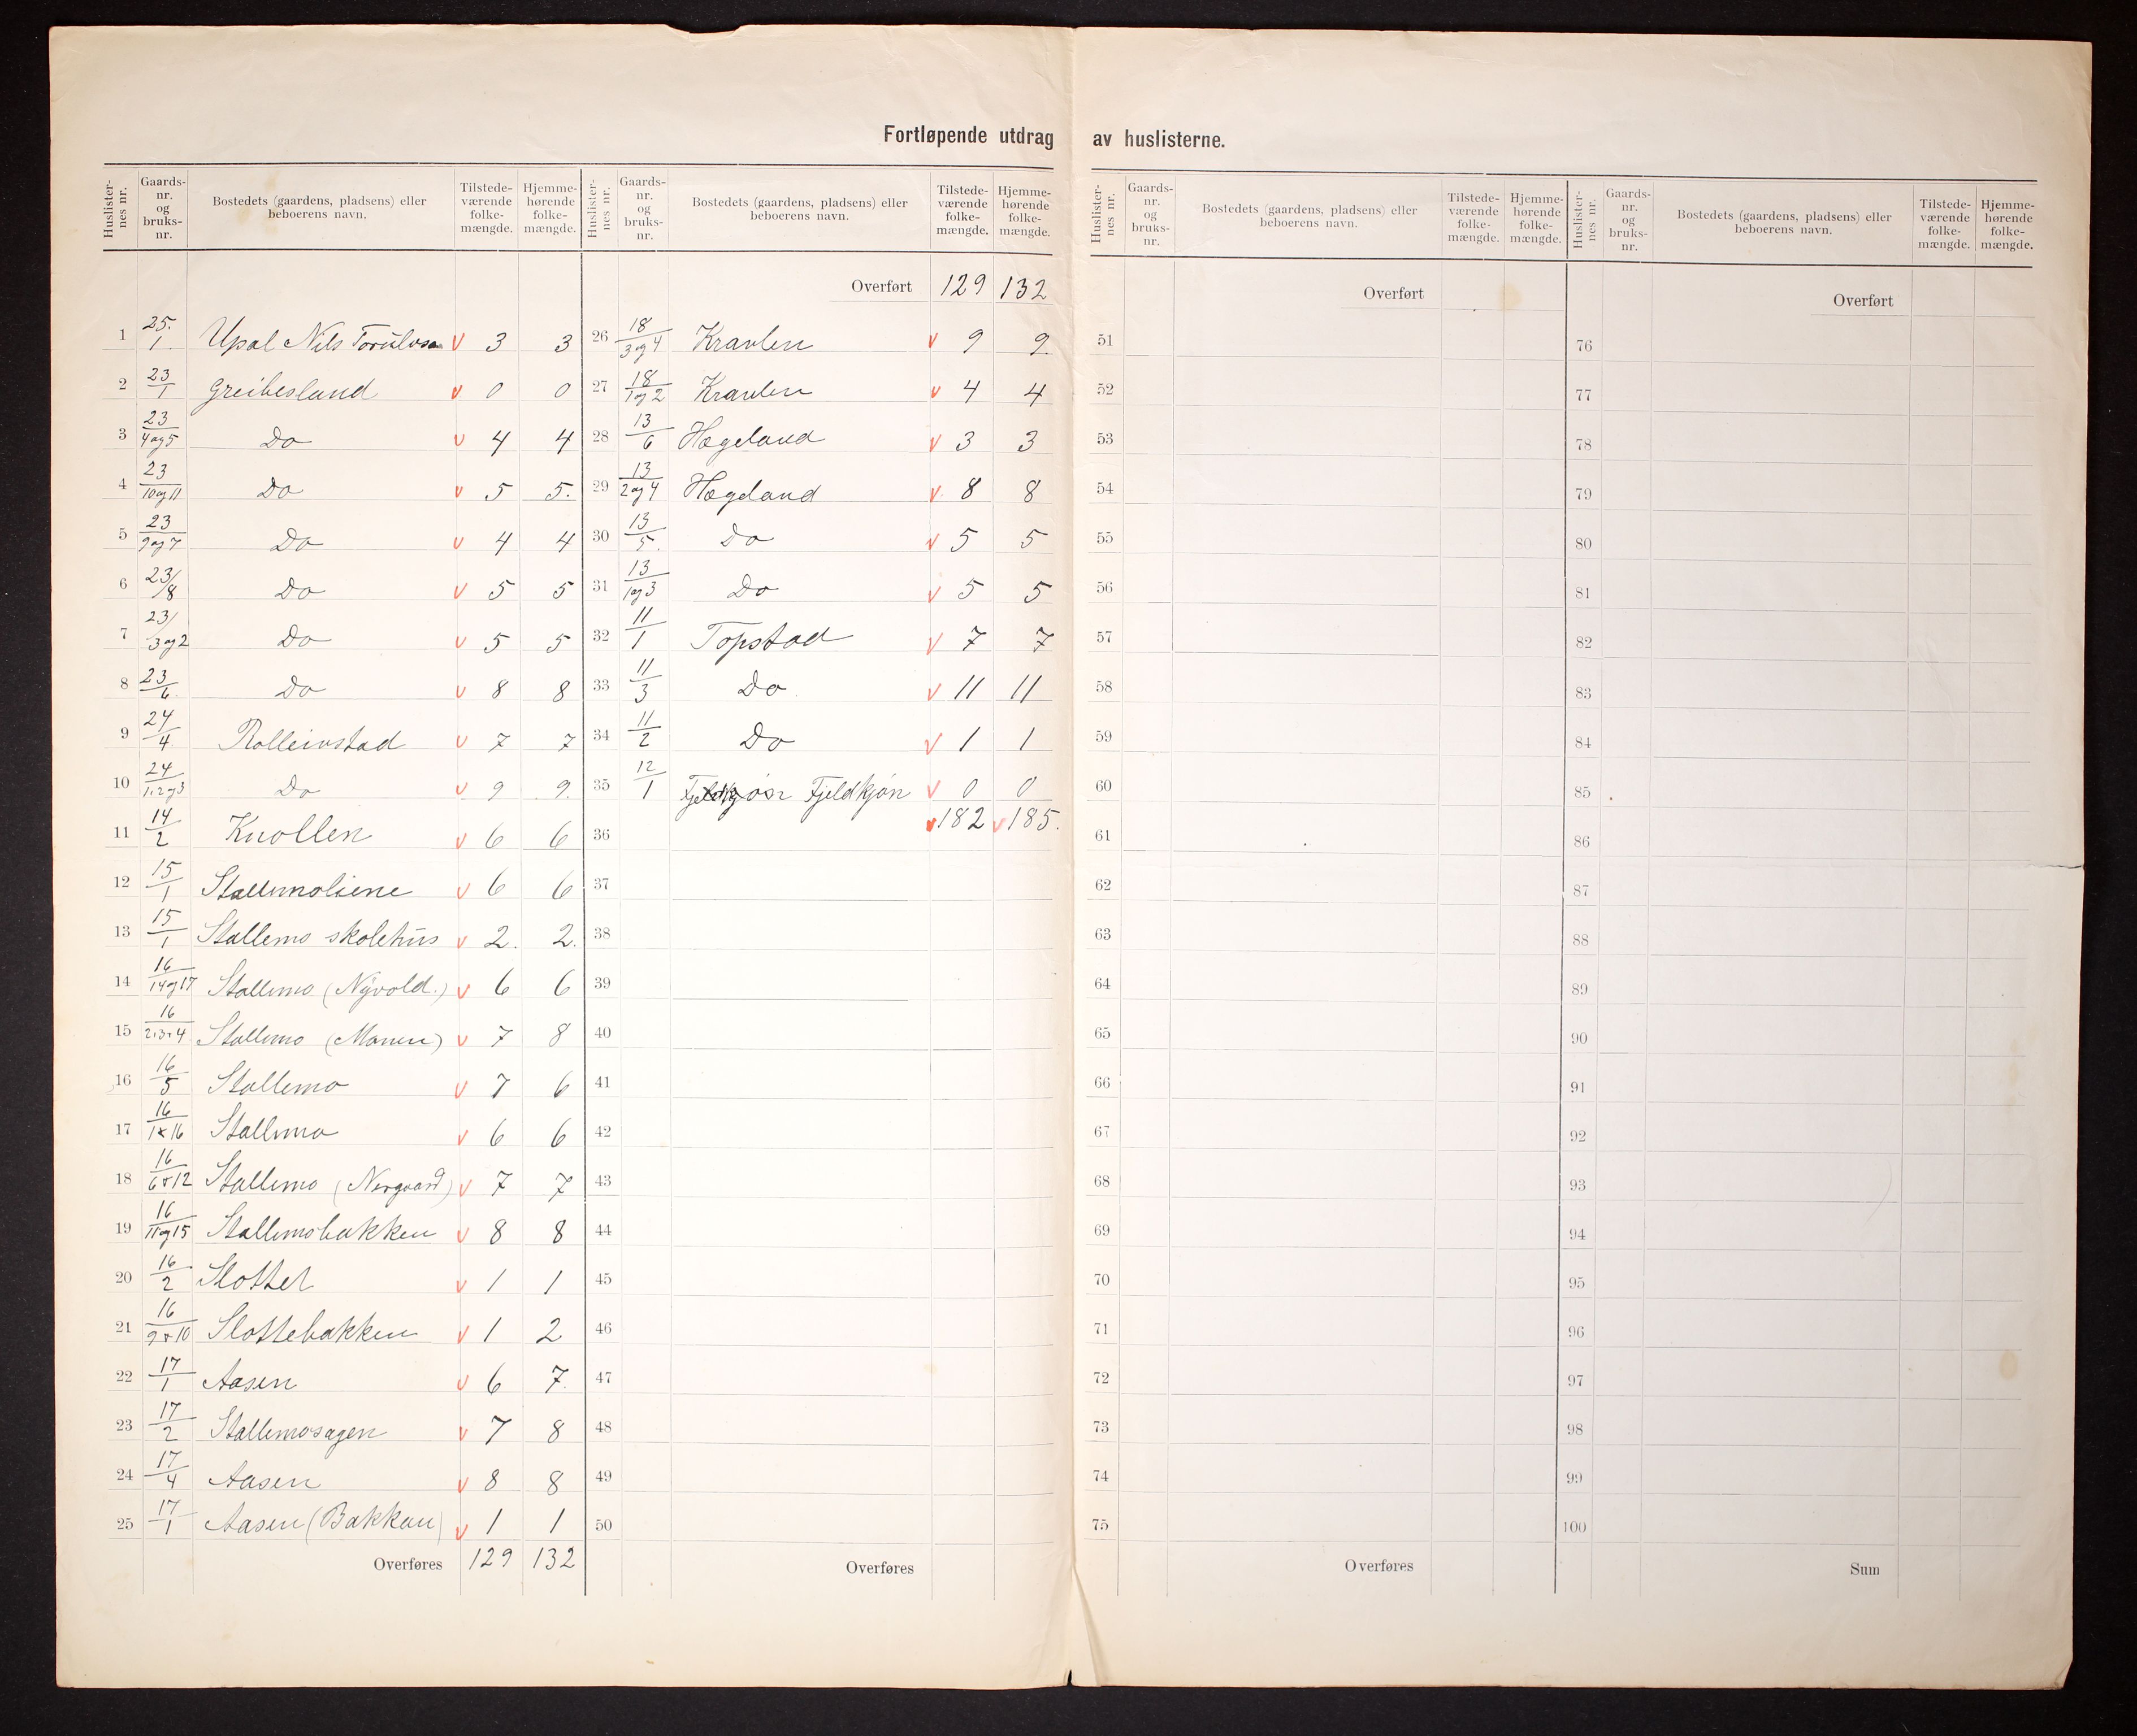 Fortløpende utdrag av huslisterne.
Huslister-nes nr. Gaards-nr. og bruks-nr. Bostedets (gaardens, pladsens) eller beboerens navn. Tilstede-værende folke-mængde. Hjemme-hørende folke-mængde.
1 25./1 Upsal Nils v 3 3
2 23/1 Greibesland v 0 0
3 23/4og5 Do v 4 4
4 23/10og11 Do v 5 5.
5 23/9og7 Do v 4 4
6 23/8 Do v 5 5
7 23/3og2 Do v 5 5
8 23/6. Do v 8 8
9 24/4. Rolleivstad v 7 7
10 24/1,2og3 Do v 9 9.
11 14/2 Knollen v 6 6
12 15/1 Stallemoliene v 6 6
13 15/1 Stallemo skolehus v 2. 2.
14 16/14og17 Stallemo (Nyvold.) v 6 6
15 16/2+3+4 Stallemo (Monen) v 7 8
16 16/5 Stallemo v 7 6
17 16/1x16 Stallemo v 6 6
18 16/6+12 Stallemo (Nergaard) v 7 7
19 16/11og15 Stallemobakken v 8 8
20 16/2 Slottet v 1 1
21 16/9+10 Slottebakken v 1 2
22 17/1 Aasen v 6 7.
23 17/2 Stallemosagen v 7 8
24 17/4 Aasen v 8 8
25 17/1 Aasen (Bakkan) v 1 1
Overføres 129 132
Huslister-nes nr. Gaards-nr. og bruks-nr. Bostedets (gaardens, pladsens) eller beboerens navn. Tilstede-værende folke-mængde. Hjemme-hørende folke-mængde.
Overført 129 132
26 18/3og4 Kravlen v 9 9.
27 18/1og2 Kravlen v 4 4
28 13/6 Hægeland v 3 3
29 13/2og4 Hægeland v 8 8
30 13/5. Do v 5 5
31 13/1og3 Do v 5 5
32 11/1 Topstad v 7 7
33 11/3 Do v 11 11
34 11/2 Do v 1 1
35 12/1 Fjeldkjøn v 0 0
36 v 182 v 185.
37
38
39
40
41
42
43
44
45
46
47
48
49
50
Overføres
Huslister-nes nr. Gaards-nr. og bruks-nr. Bostedets (gaardens, pladsens) eller beboerens navn. Tilstede-værende folke-mængde. Hjemme-hørende folke-mængde.
Overført
51
52
53
54
55
56
57
58
59
60
61
62
63
64
65
66
67
68
69
70
71
72
73
74
75
Overføres
Huslister-nes nr. Gaards-nr. og bruks-nr. Bostedets (gaardens, pladsens) eller beboerens navn. Tilstede-værende folke-mængde. Hjemme-hørende folke-mængde.
Overført
76
77
78
79
80
81
82
83
84
85
86
87
88
89
90
91
92
93
94
95
96
97
98
99
100
Sum